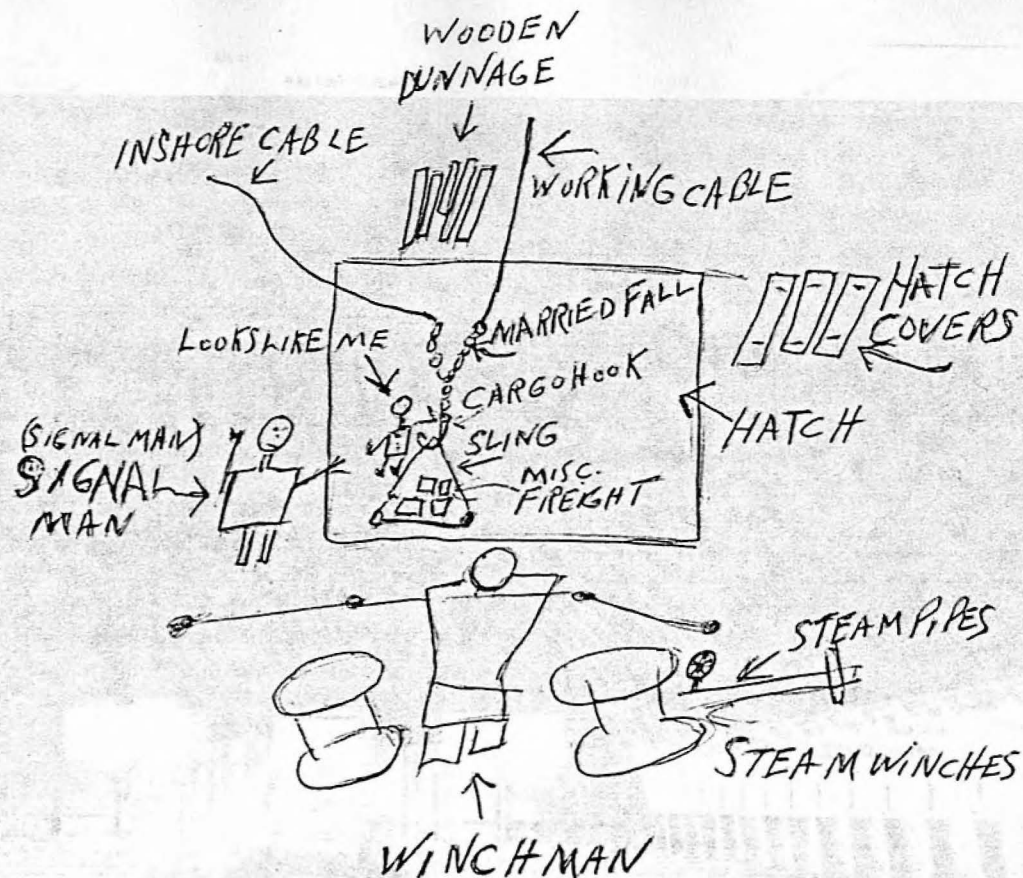 WOODEN
DUNNAGE
INSHORE CABLE
WORKING CABLE
HATCH
COVERS
MARRIED FALL
LOOKS LIKE ME
CARGO HOOK
HATCH
SLING
(SIGNAL MAN)
SIGNAL
MAN
MISC.
FREIGHT
STEAM PIPES
STEAM WINCHES
WINCHMAN